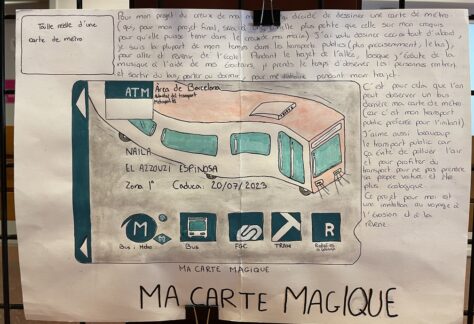 Taille réelle d'une
carte de métro
Pour mon projet du creux de ma main j'ai décidé de dessiner une carte de métro
(que, pour mon projet final, sera plus petite que celle sur mon croquis
pour qu'elle puisse tenir dans le creux de ma main). J'ai voulu dessiner ceci car tout d'abord,
je suis la plupart de mon temps dans les transports publics (plus précisément, le bus),
pour aller et revenir de l'école. Pendant le trajet de l'aller, lorsque j'écoute de la
musique à l'aide de mes écouteurs, je prends le temps d'observer les personnes entrer
et sortir du bus, parler ou dormir pour me distraire pendant mon trajet.
C'est pour cela que l'on
peut observer un bus
derrière ma carte de métro
(car c'est mon transport
public préféré pour l'instant).
J'aime aussi beaucoup
le transport public car
ça évite de polluer l'air
et pour profiter du
transport pour ne pas prendre
sa propre voiture et être
plus écologique.
Ce projet pour moi est
une invitation au voyage à
l'évasion et à la
rêverie.
ATM
Àrea de Barcelona
Autoritat del transport
Metropolità
NAILA
EL AZZOUZI ESPINOSA
Zona 1ª Caduca: 20/07/2023
M
M
R
Bus i Metro
Bus
FGC
TRAM
Rodalies
MA CARTE MAGIQUE
MA CARTE MAGIQUE